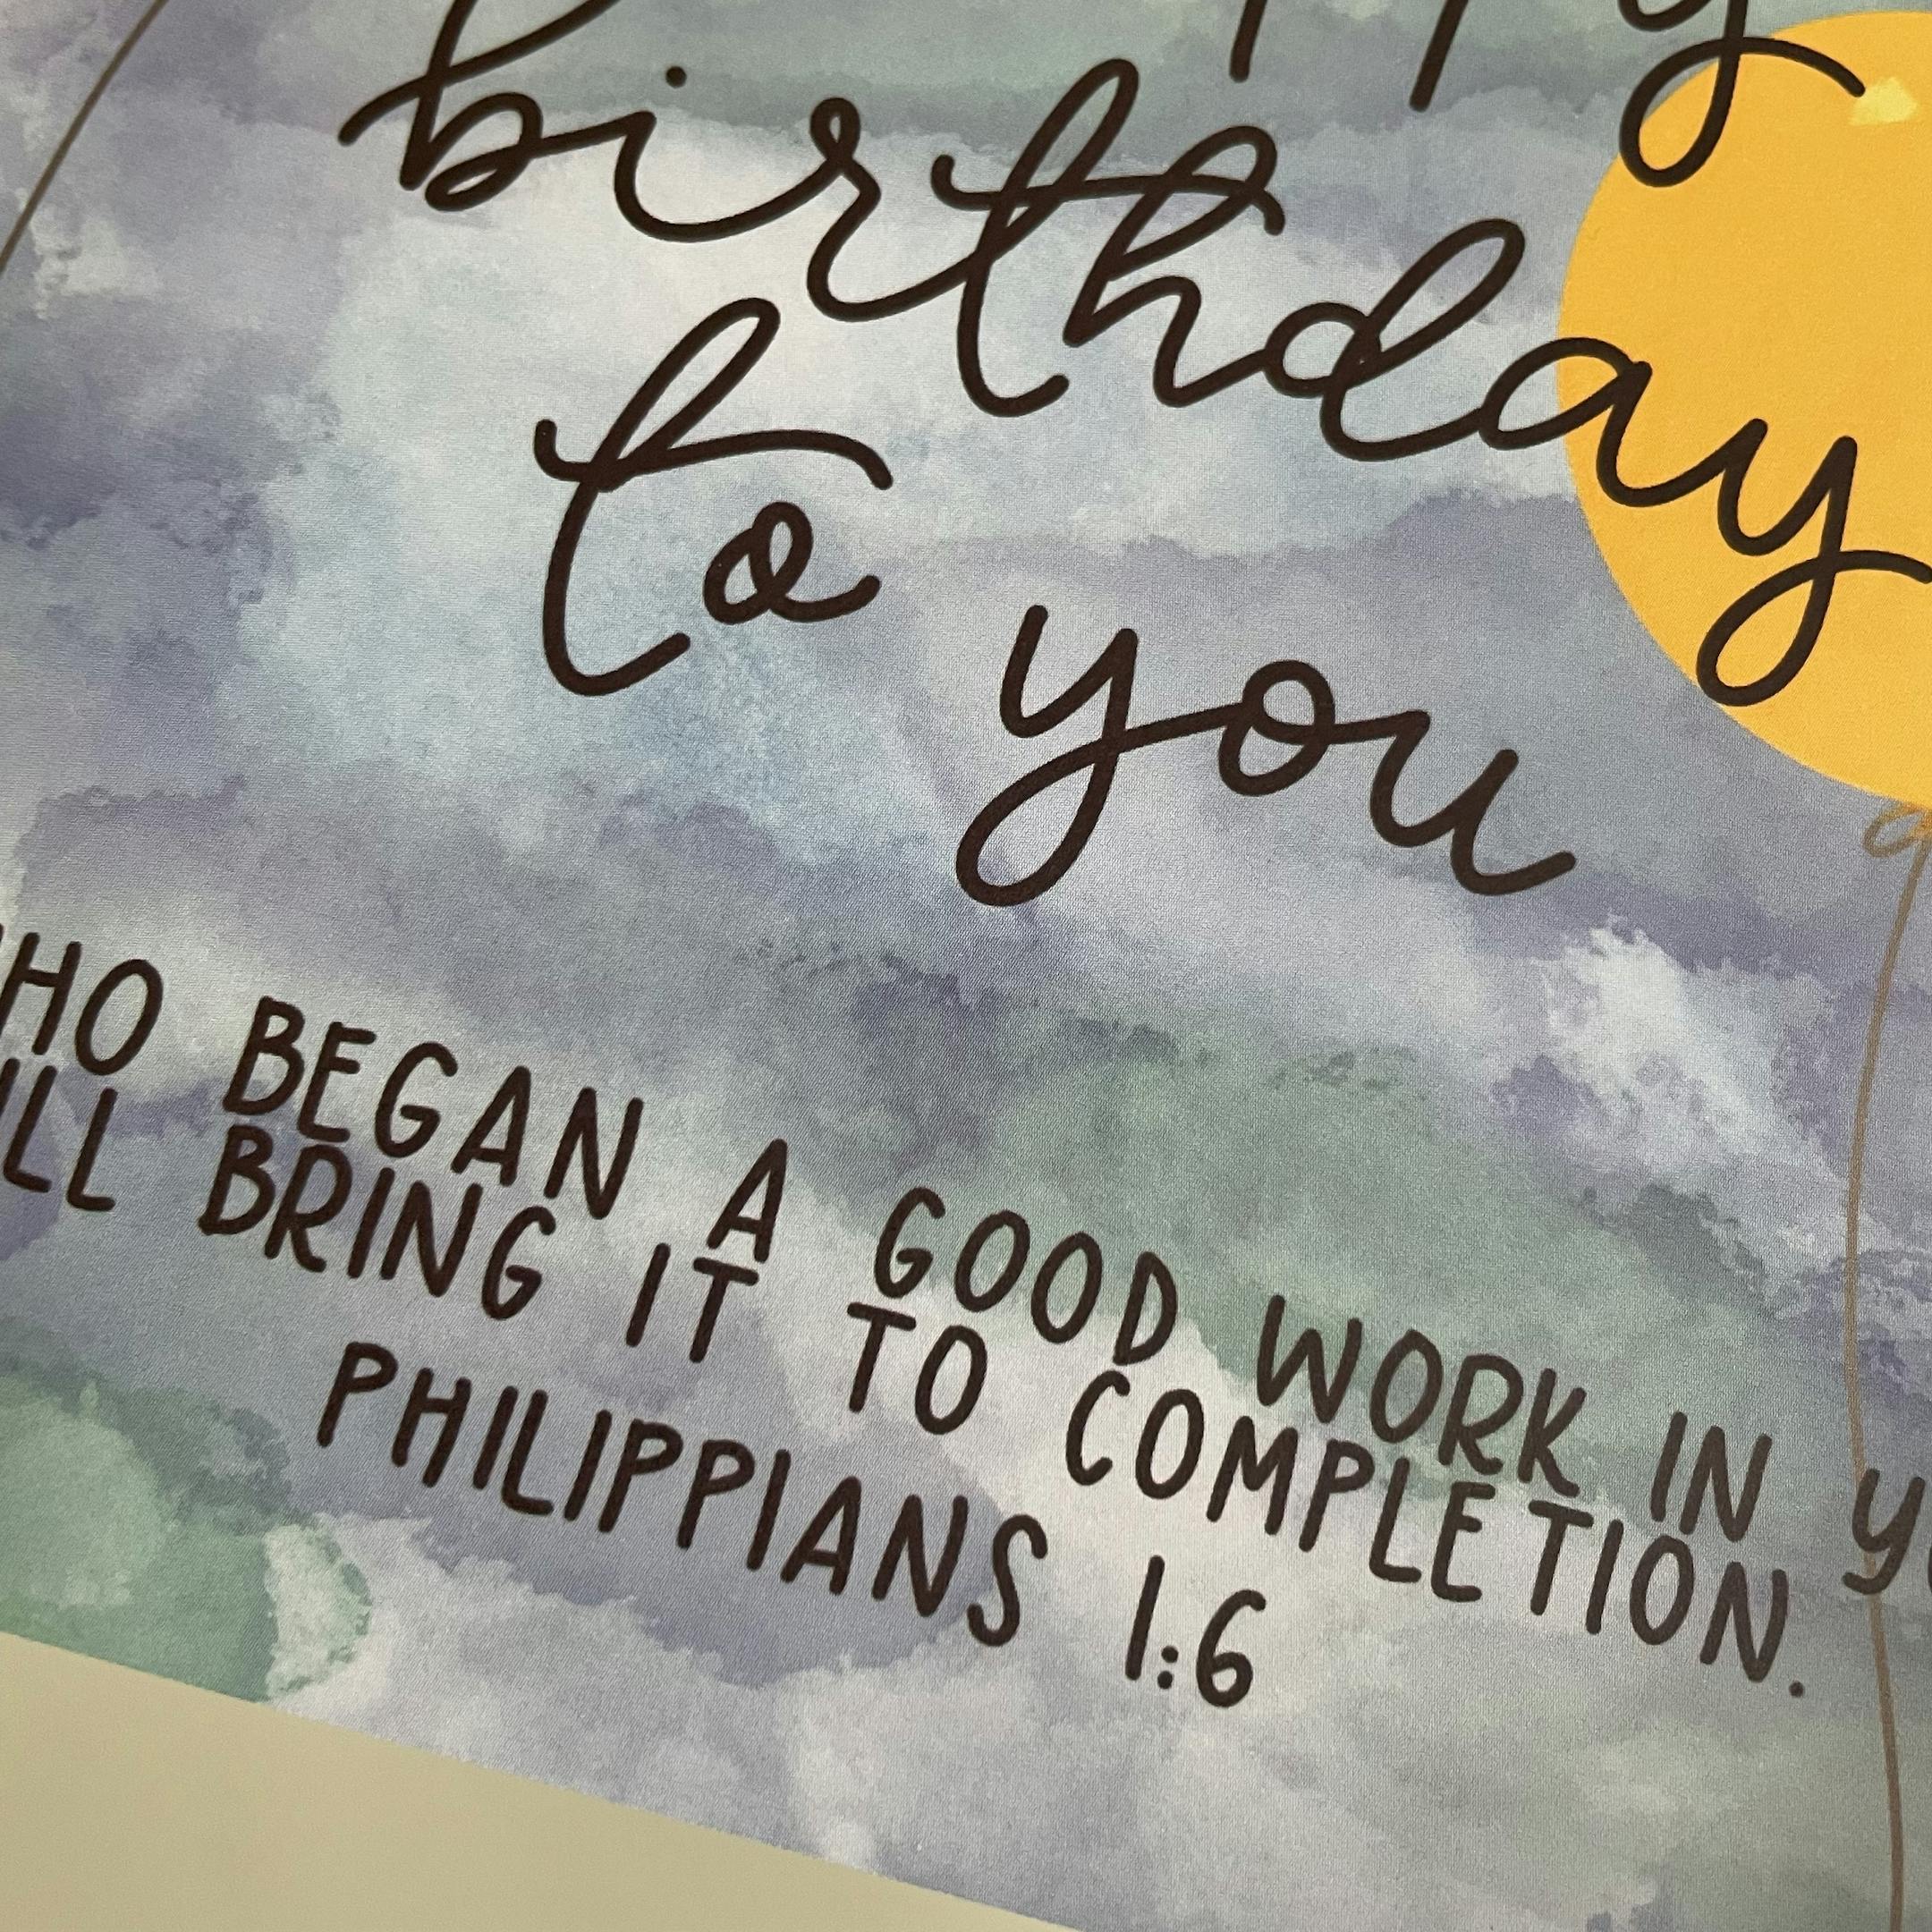 birthday
to you
BEGAN A GOOD WORK IN
BRING IT TO COMPLETION.
PHILIPPIANS 1:6